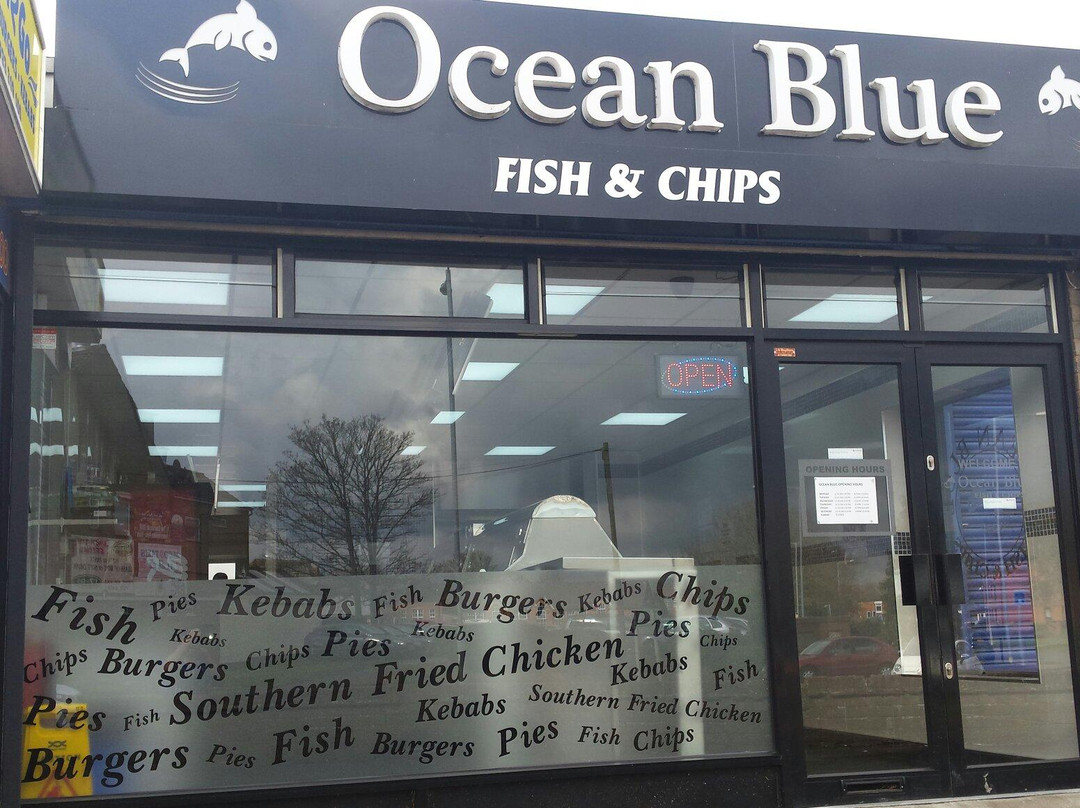 Ocean Blue
FISH & CHIPS
OPEN
OPENING HOURS
WELCOME
Fish Pies Kebabs Fish Burgers Kebabs Chips
Kebabs Kebabs Pies Chips
Chips Burgers Chips Pies
Southern Fried Chicken Kebabs Fish
Pies Fish Kebabs Southern Fried Chicken
Burgers Pies Fish Burgers Pies Fish Chips